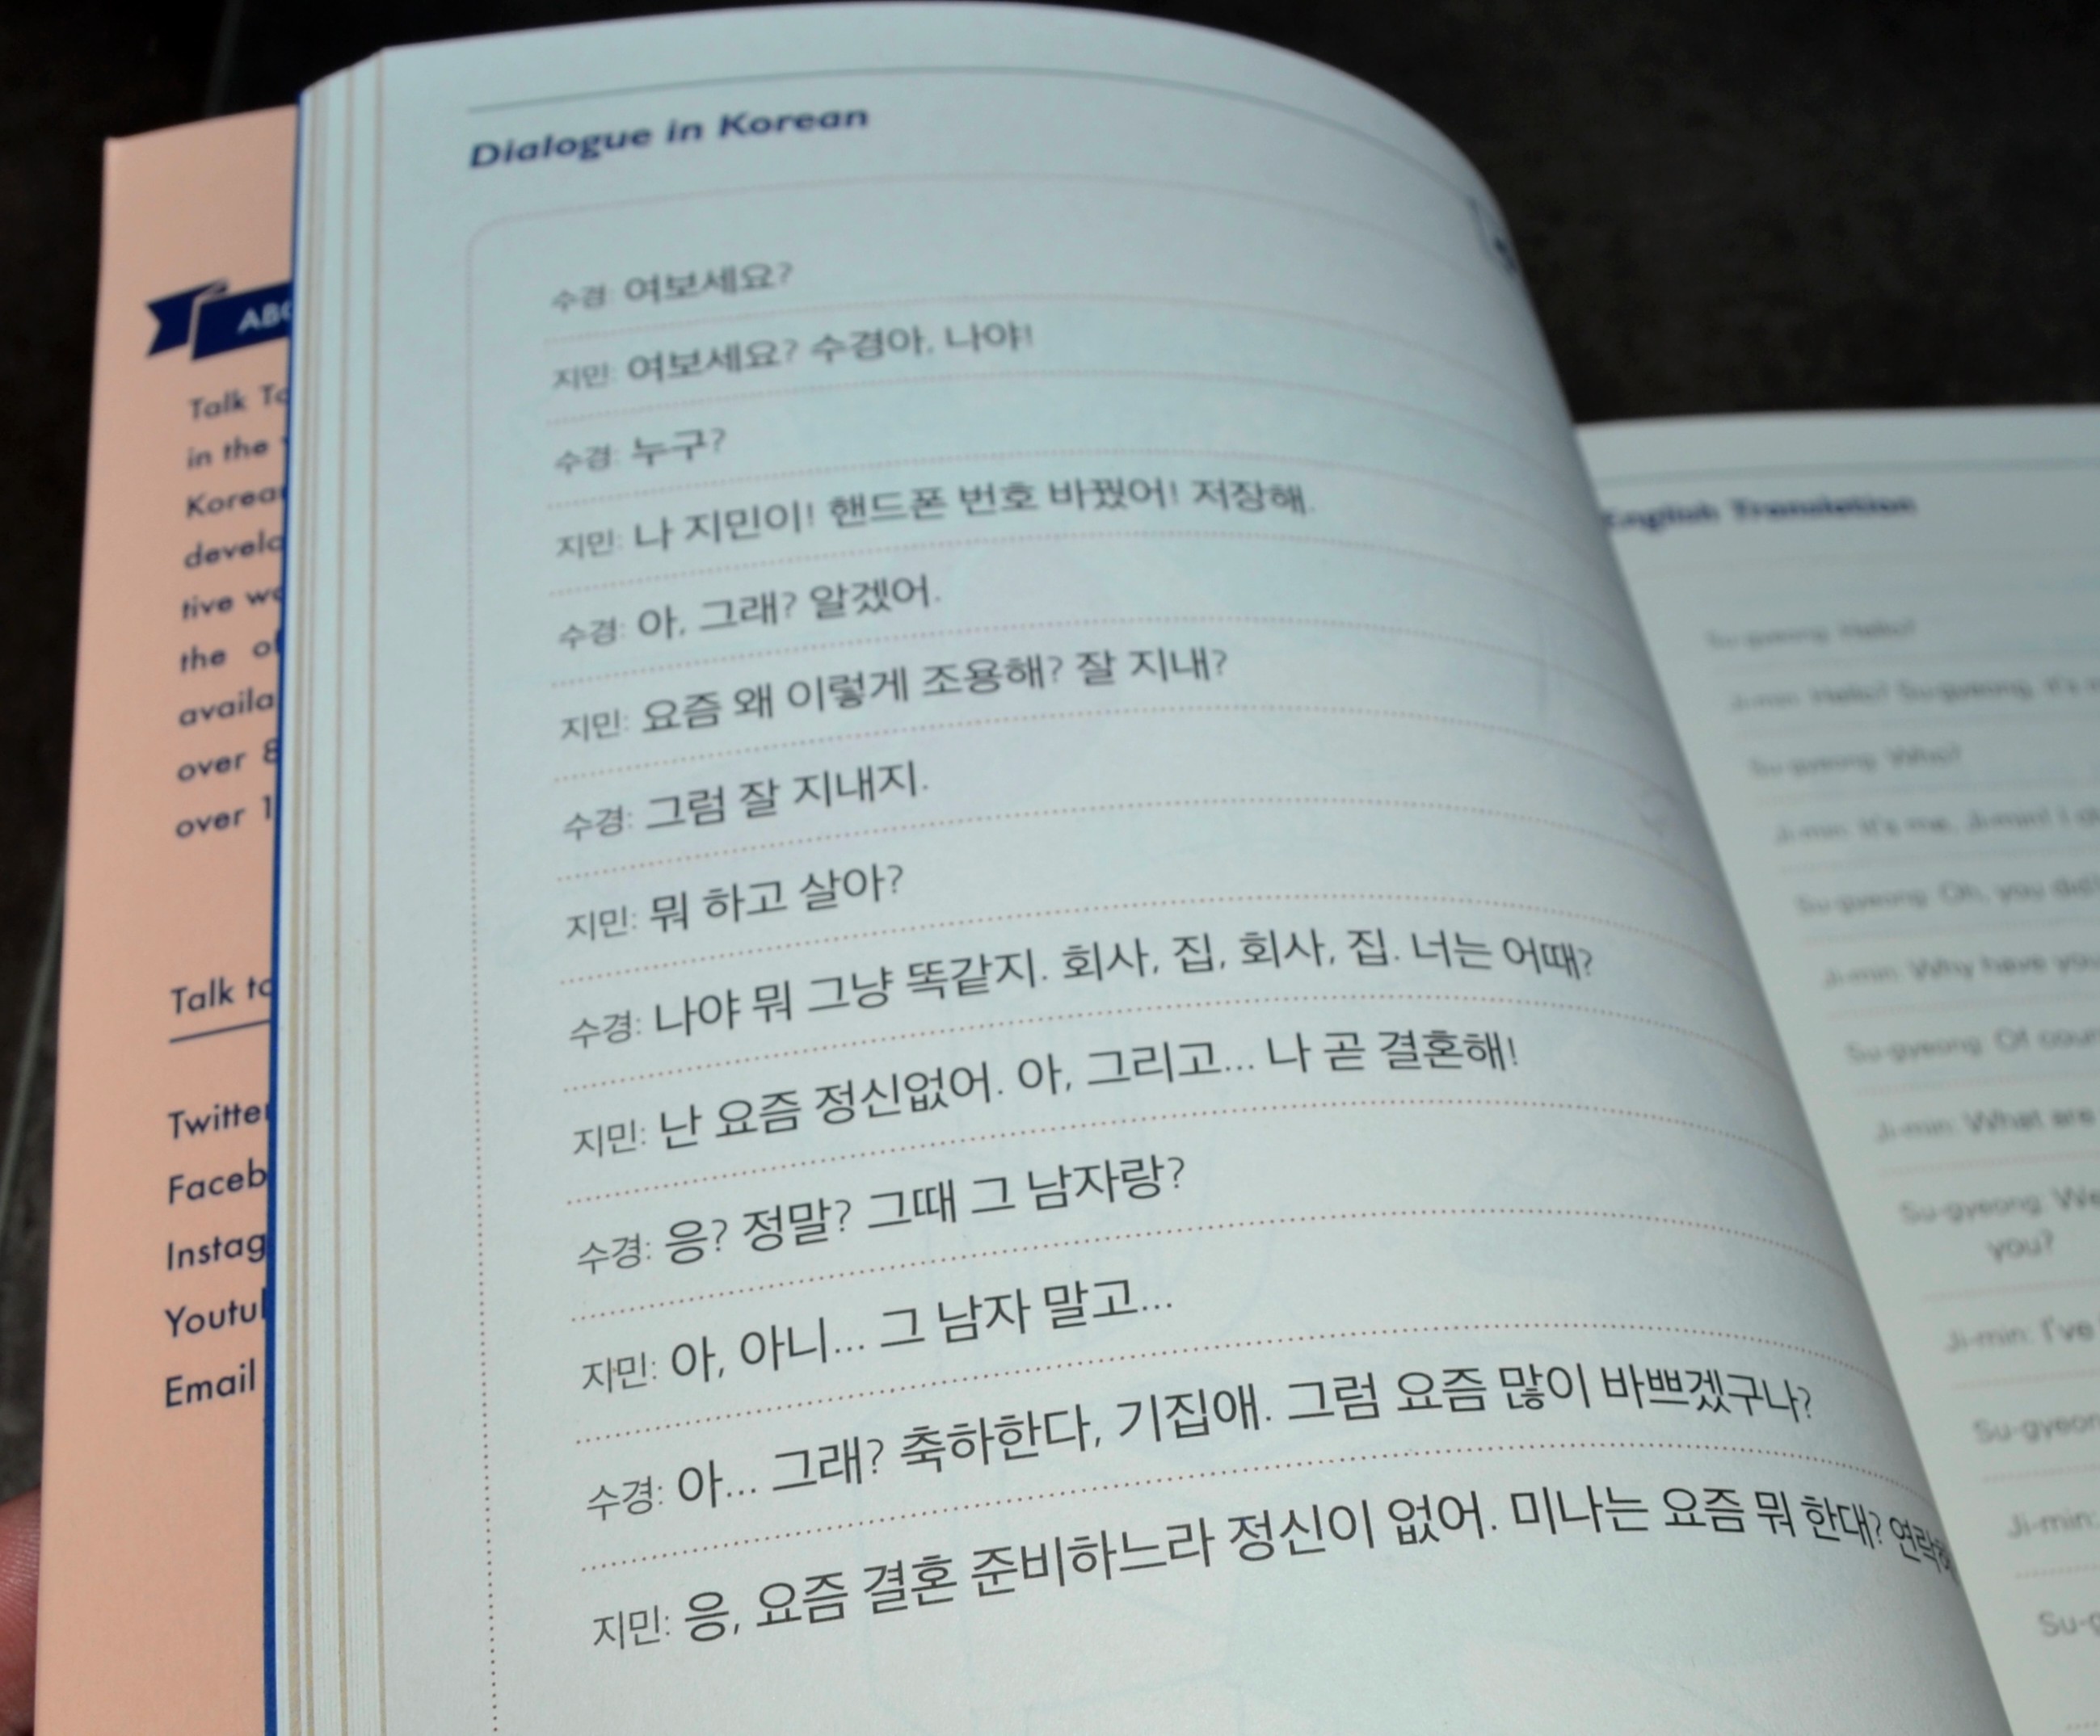 Dialogue in Korean
수경: 여보세요?
지민: 여보세요? 수경아, 나야!
수경: 누구?
지민: 나 지민이! 핸드폰 번호 바꿨어! 저장해.
수경: 아, 그래? 알겠어.
지민: 요즘 왜 이렇게 조용해? 잘 지내?
수경: 그럼 잘 지내지.
지민: 뭐 하고 살아?
수경: 나야 뭐 그냥 똑같지. 회사, 집, 회사, 집. 너는 어때?
지민: 난 요즘 정신없어. 아, 그리고... 나 곧 결혼해!
수경: 응? 정말? 그때 그 남자랑?
지민: 아, 아니... 그 남자 말고...
수경: 아... 그래? 축하한다, 기집애. 그럼 요즘 많이 바쁘겠구나?
지민: 응, 요즘 결혼 준비하느라 정신이 없어. 미나는 요즘 뭐 한대?
Talk
in the
over
the
over
over 1
Talk
Email
English Translation
Su-gyeong: Hello?
Ji-min: Hello? Su-gyeong, it's
Su-gyeong: Who?
Ji-min: It's me, Ji-min! I
Su-gyeong: Oh, you
Ji-min: Why have you
Su-gyeong: Of
Ji-min: What are
Su-gyeong:
you?
Ji-min: I've
Ji-min: